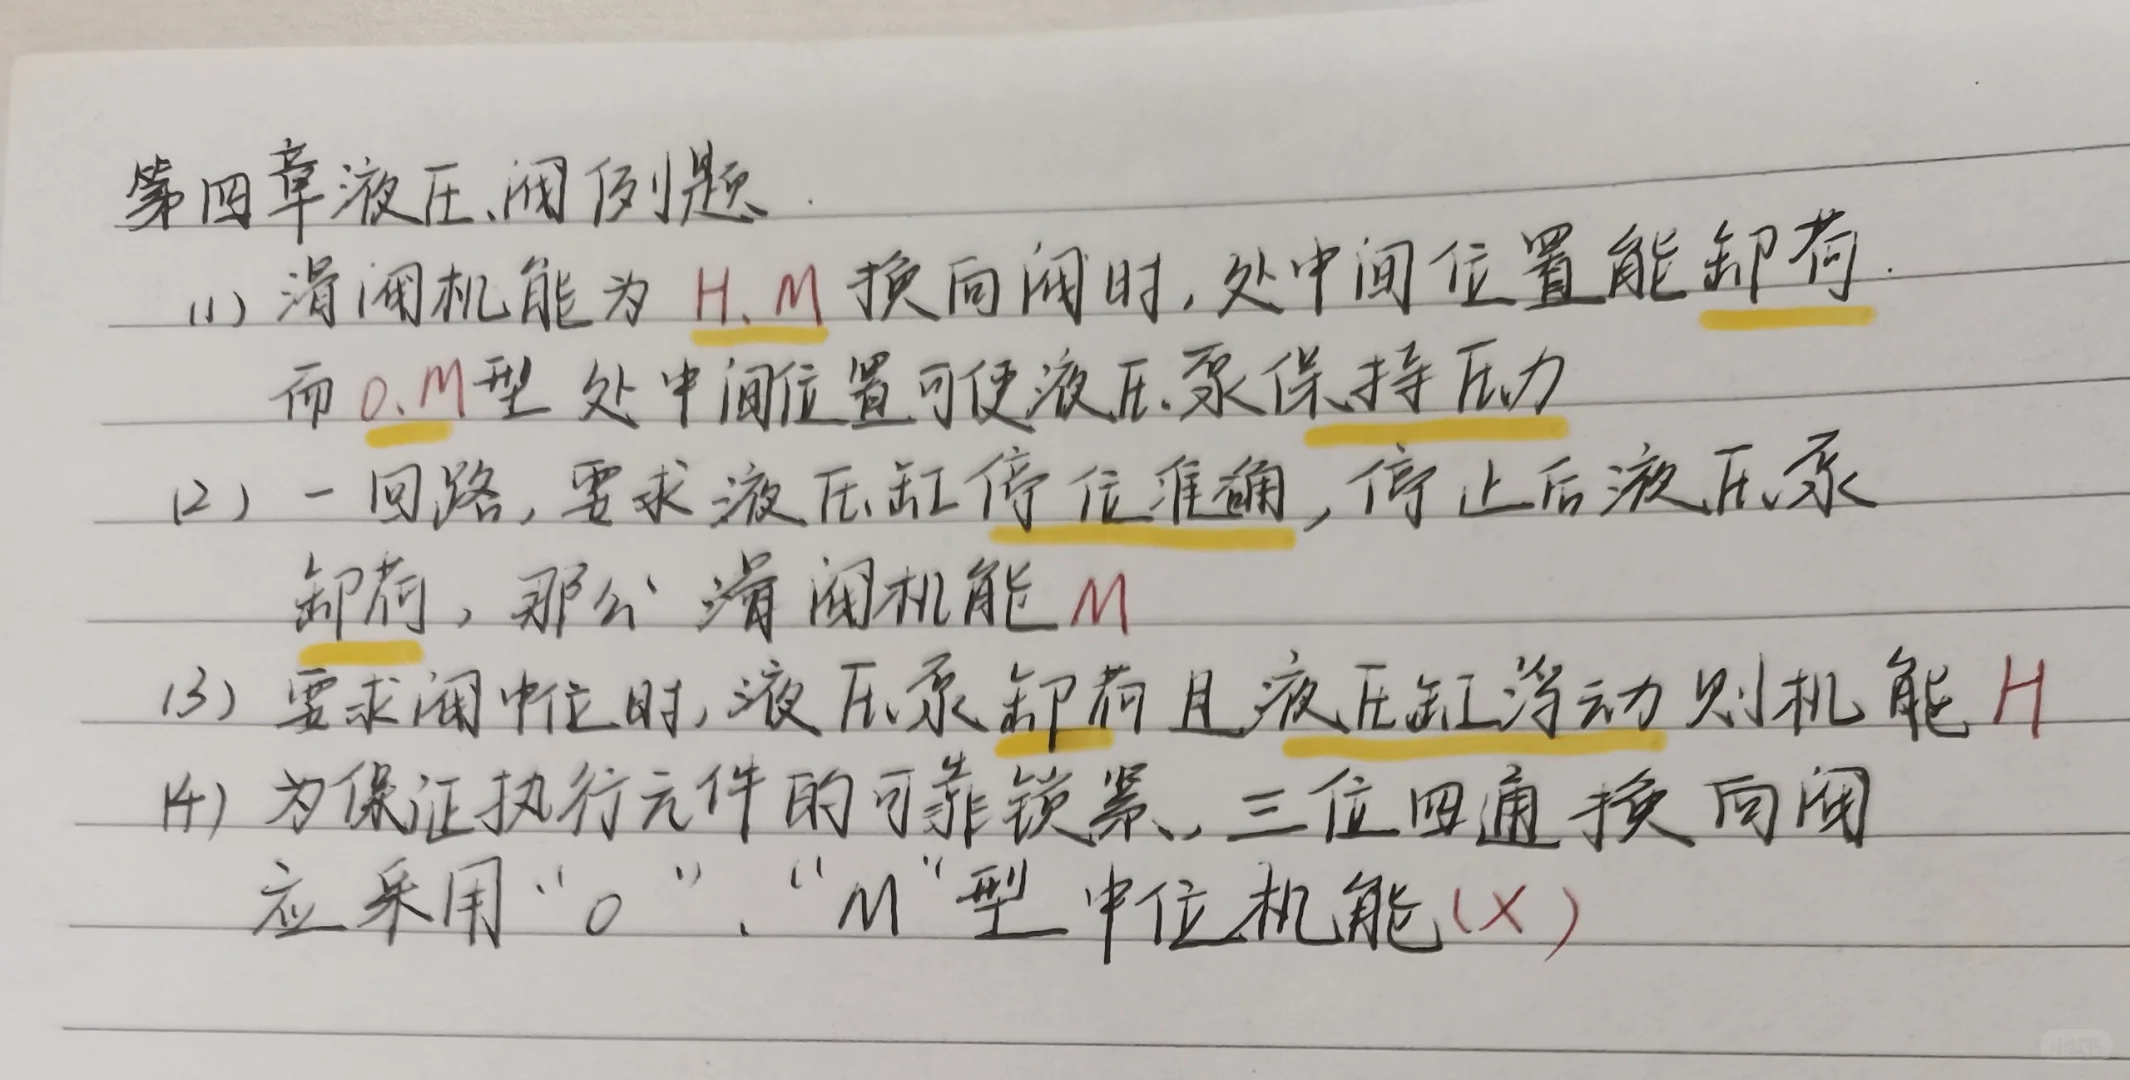 第四章液压阀例题.
(1) 滑阀机能为 H、M 换向阀时,处中间位置能卸荷.
而 O、M型 处中间位置可使液压泵保持压力
(2) 一回路,要求液压缸停位准确,停止后液压泵
卸荷,那么滑阀机能M
(3) 要求阀中位时,液压泵卸荷且液压缸浮动则机能H
(4) 为保证执行元件的可靠锁紧,三位四通换向阀
应采用“O”、“M”型中位机能(X)